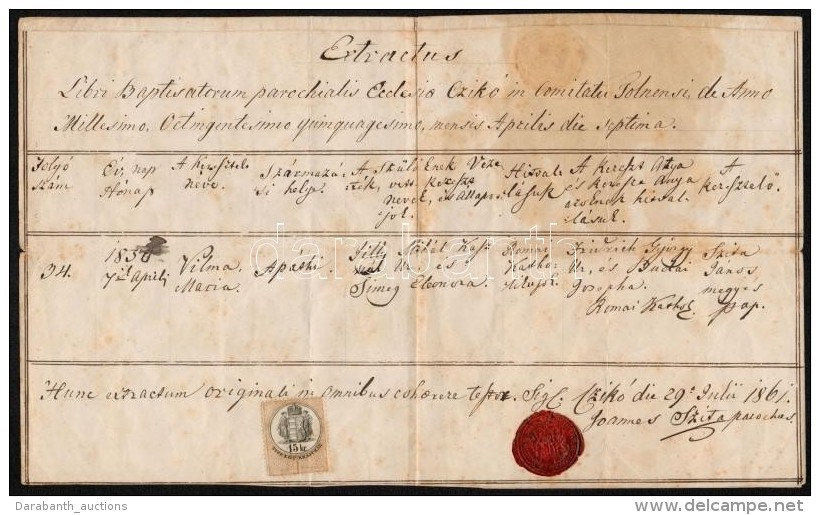 Extractus
Libri Baptisatorum parochialis Ecclesiæ Czikó in Comitatu Tolnensi, de Anno
Millesimo, Octingentesimo quinquagesimo, mensis Aprilis die septima.
Folyó szám
Év, nap Hónap
A Keresztelt neve.
Származási helye.
A Szülőknek Veze
zék, vett kereszt
nevek, és állapot
jok.
Hitvallásuk
A Kereszt Atya
és Kereszt Anya
azoknak hitval
lásuk.
A keresztelő.
34.
1850 7. Aprilj
Vilma, Maria.
Apáthi.
Mihál Kas.
Ur és
Simeg Eleonora.
Romai Katho
Fridrich György
Ur, és Budai
Josepha.
Romai Kathol.
Szita
János,
megyés
pap.
Hunc extractum originali in omnibus cohærere testor. Sigl. Czikó die 29a Julii 1861.
Joannes Szita parochus.
15 kr.
darabanth
Darabanth_auctions
www.delcampe.net